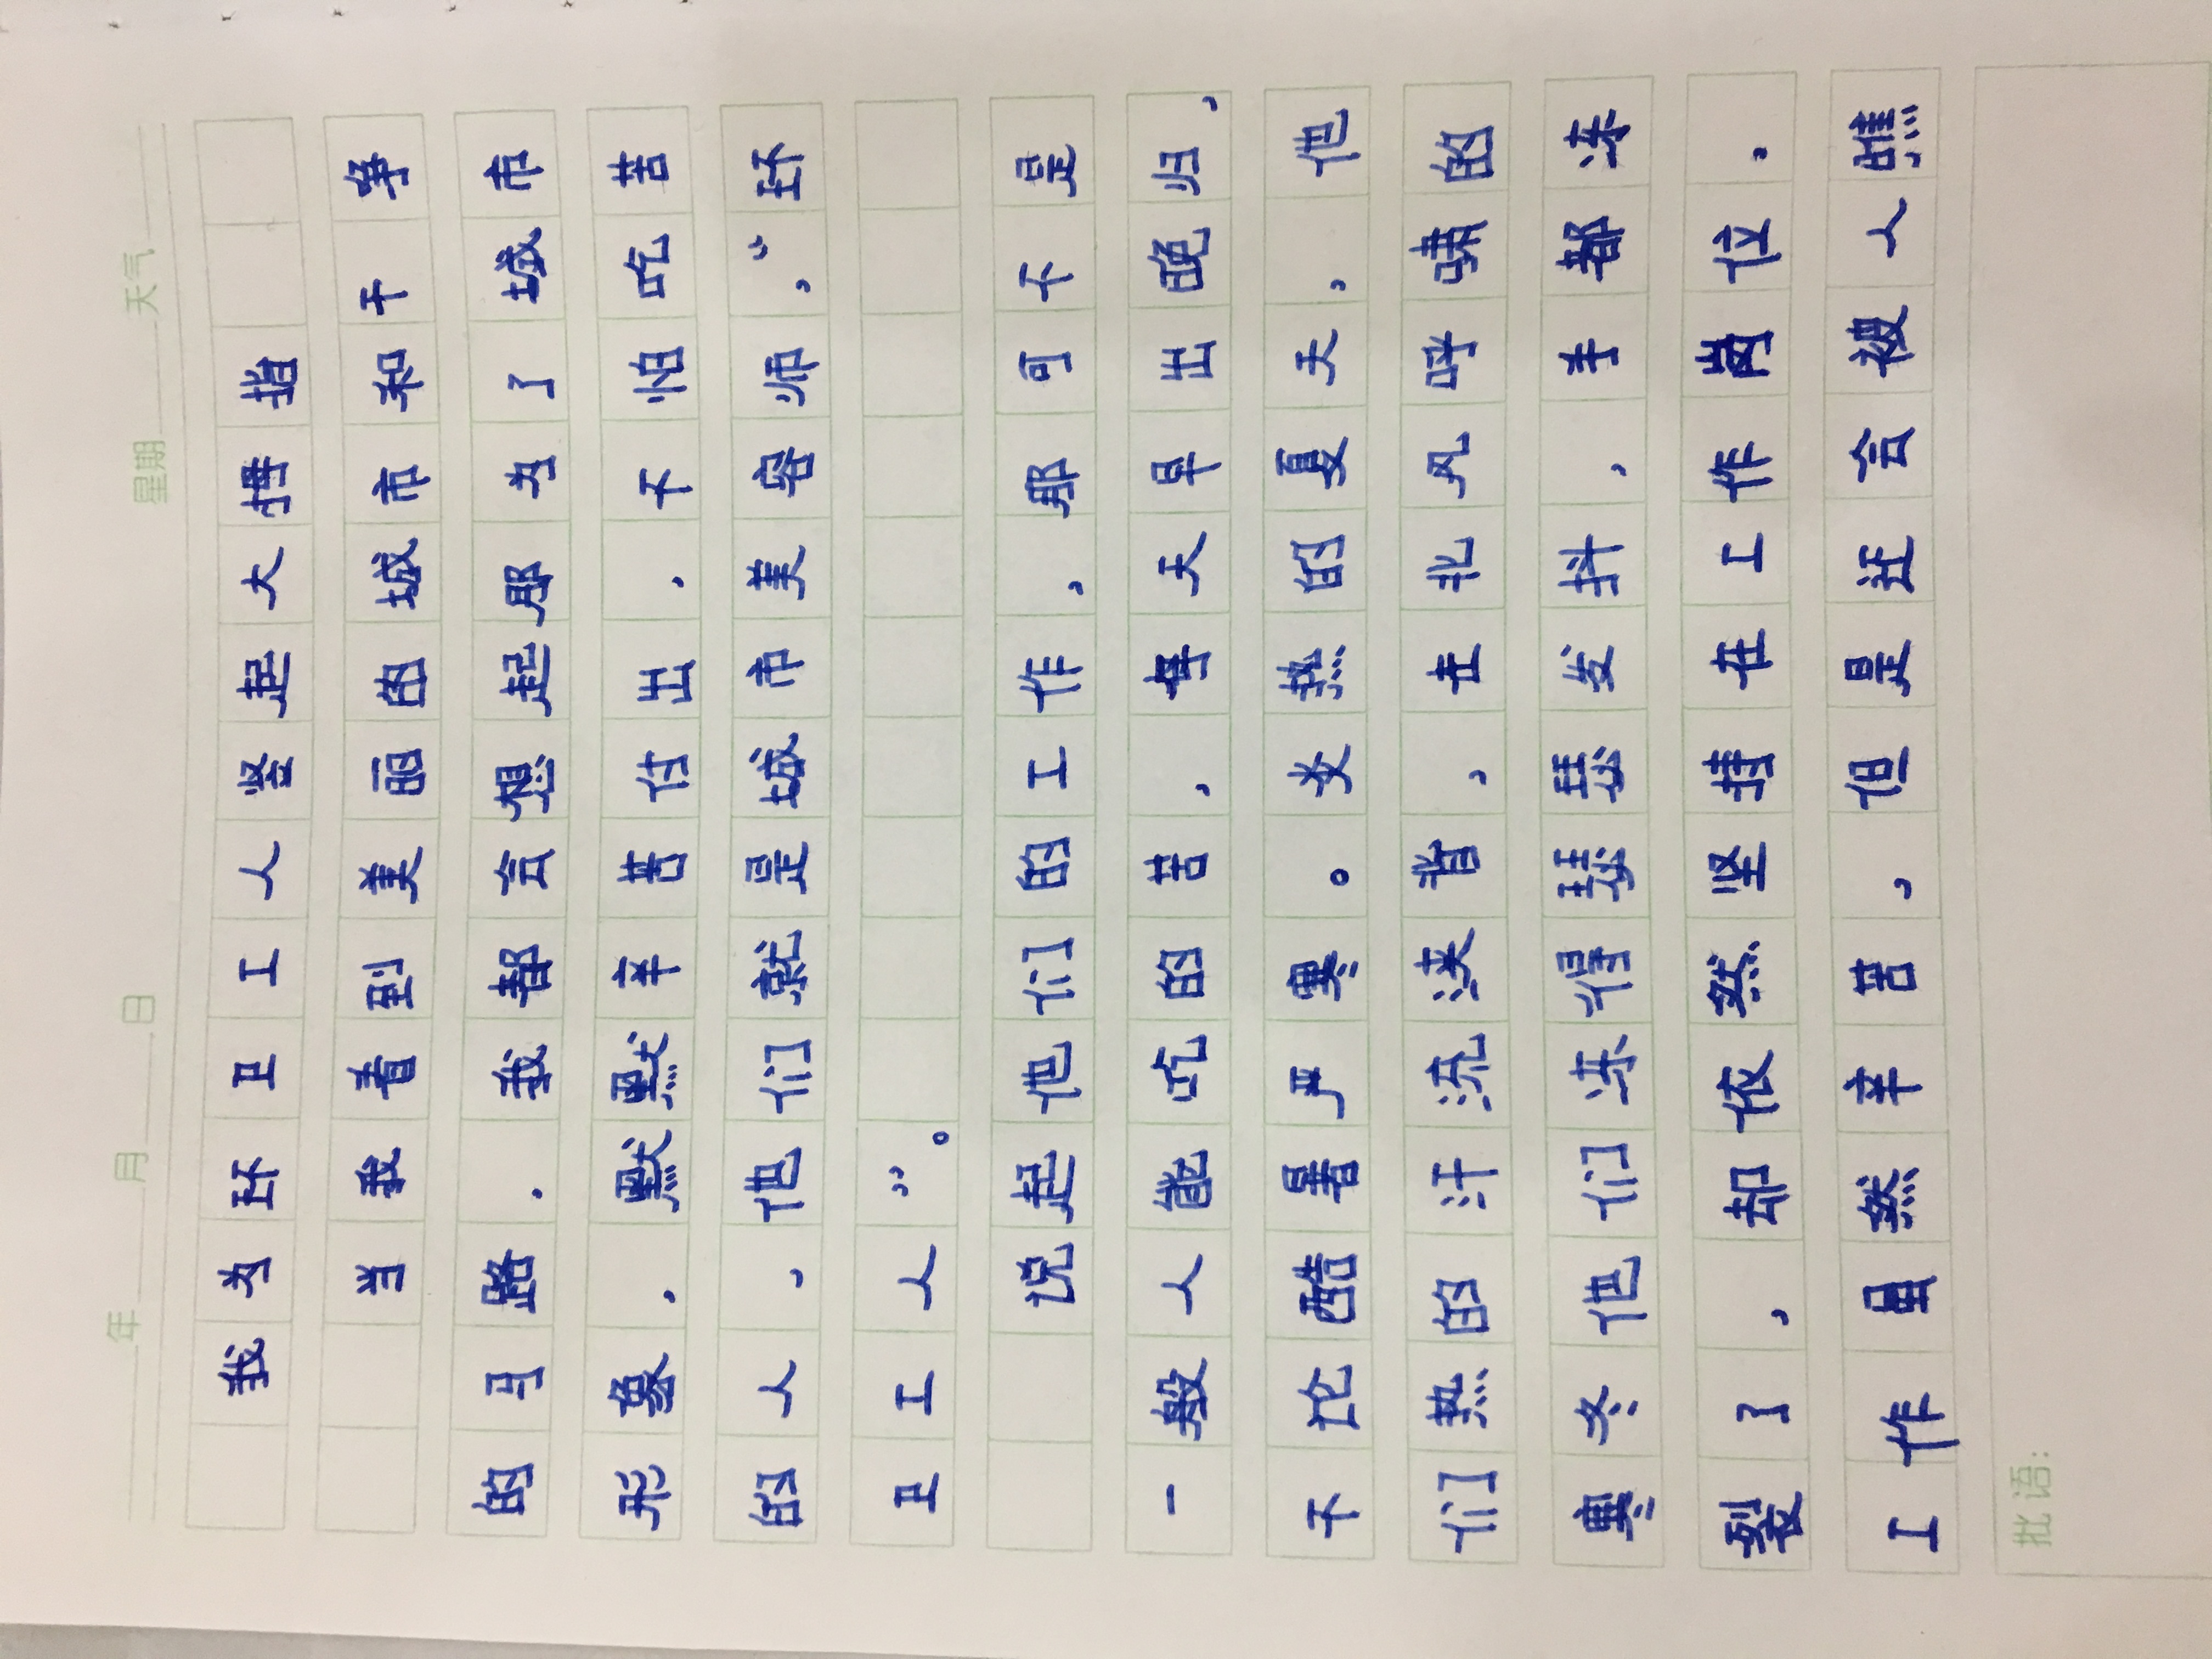 年 月 日 星期 天气
我为环卫工人竖起大拇指
当我看到美丽的城市和干净
的马路，我都会想起那为了城市
形象，默默辛苦付出，不怕吃苦
的人，他们就是城市美容师，“环
卫工人”。
说起他们的工作，那可不是
一般人能吃的苦，每天早出晚归，
不论酷暑严寒。炎热的夏天，他
们热的汗流浃背，在北风呼啸的
寒冬他们冻得瑟瑟发抖，手都冻
裂了，却依然坚持在工作岗位，
工作虽然辛苦，但是还会被人瞧
批语：